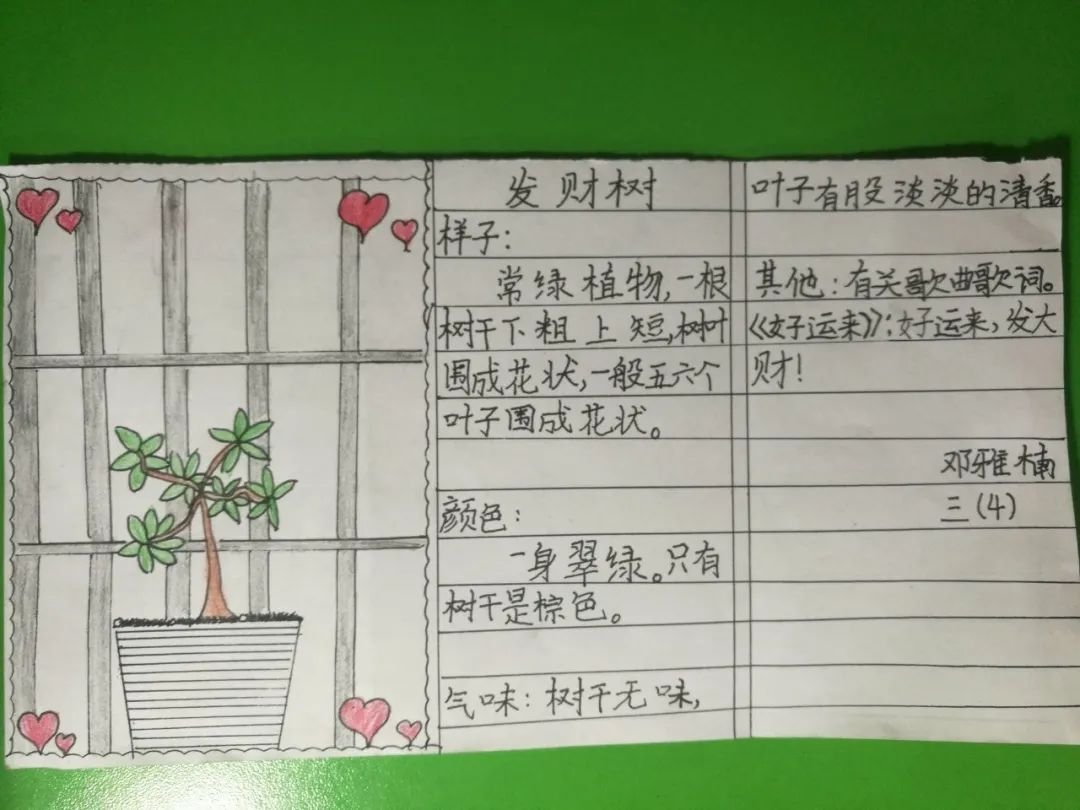 发财树
样子:
常绿植物,一根
树干下粗上短,树叶
围成花状,一般五六个
叶子围成花状。
颜色:
一身翠绿。只有
树干是棕色。
气味:树干无味,
叶子有股淡淡的清香。
其他:有关歌曲歌词。
《好运来》:好运来,发大
财!
邓雅楠
三(4)